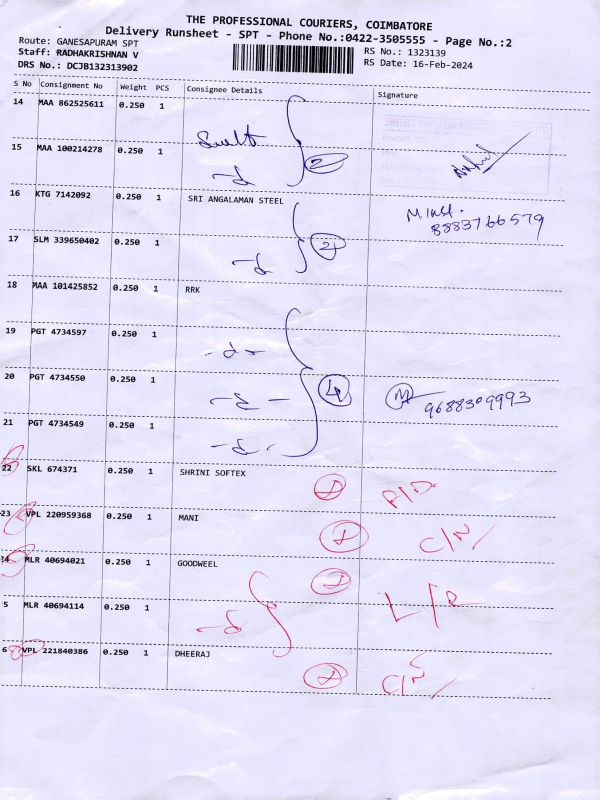 THE PROFESSIONAL COURIERS, COIMBATORE
Delivery Runsheet - SPT - Phone No.:0422-3505555 - Page No.:2
Route: GANESAPURAM SPT
RS No.: 1323139
Staff: RADHAKRISHNAN V
RS Date: 16-Feb-2024
DRS No.: DCJB132313902
S No Consignment No Weight PCS Consignee Details Signature
14 MAA 862525611 0.250 1
15 MAA 100214278 0.250 1
2
16 KTG 7142092 0.250 1 SRI ANGALAMAN STEEL
8883766579
17 SLM 339650402 0.250 1
2
18 MAA 101425852 0.250 1 RRK
19 PGT 4734597 0.250 1
20 PGT 4734550 0.250 1
4
9688309993
21 PGT 4734549 0.250 1
22 SKL 674371 0.250 1 SHRINI SOFTEX
23 VPL 220959368 0.250 1 MANI
C/N
24 MLR 40694021 0.250 1 GOODWEEL
5 MLR 40694114 0.250 1
L/R
6 VPL 221840386 0.250 1 DHEERAJ
C/N